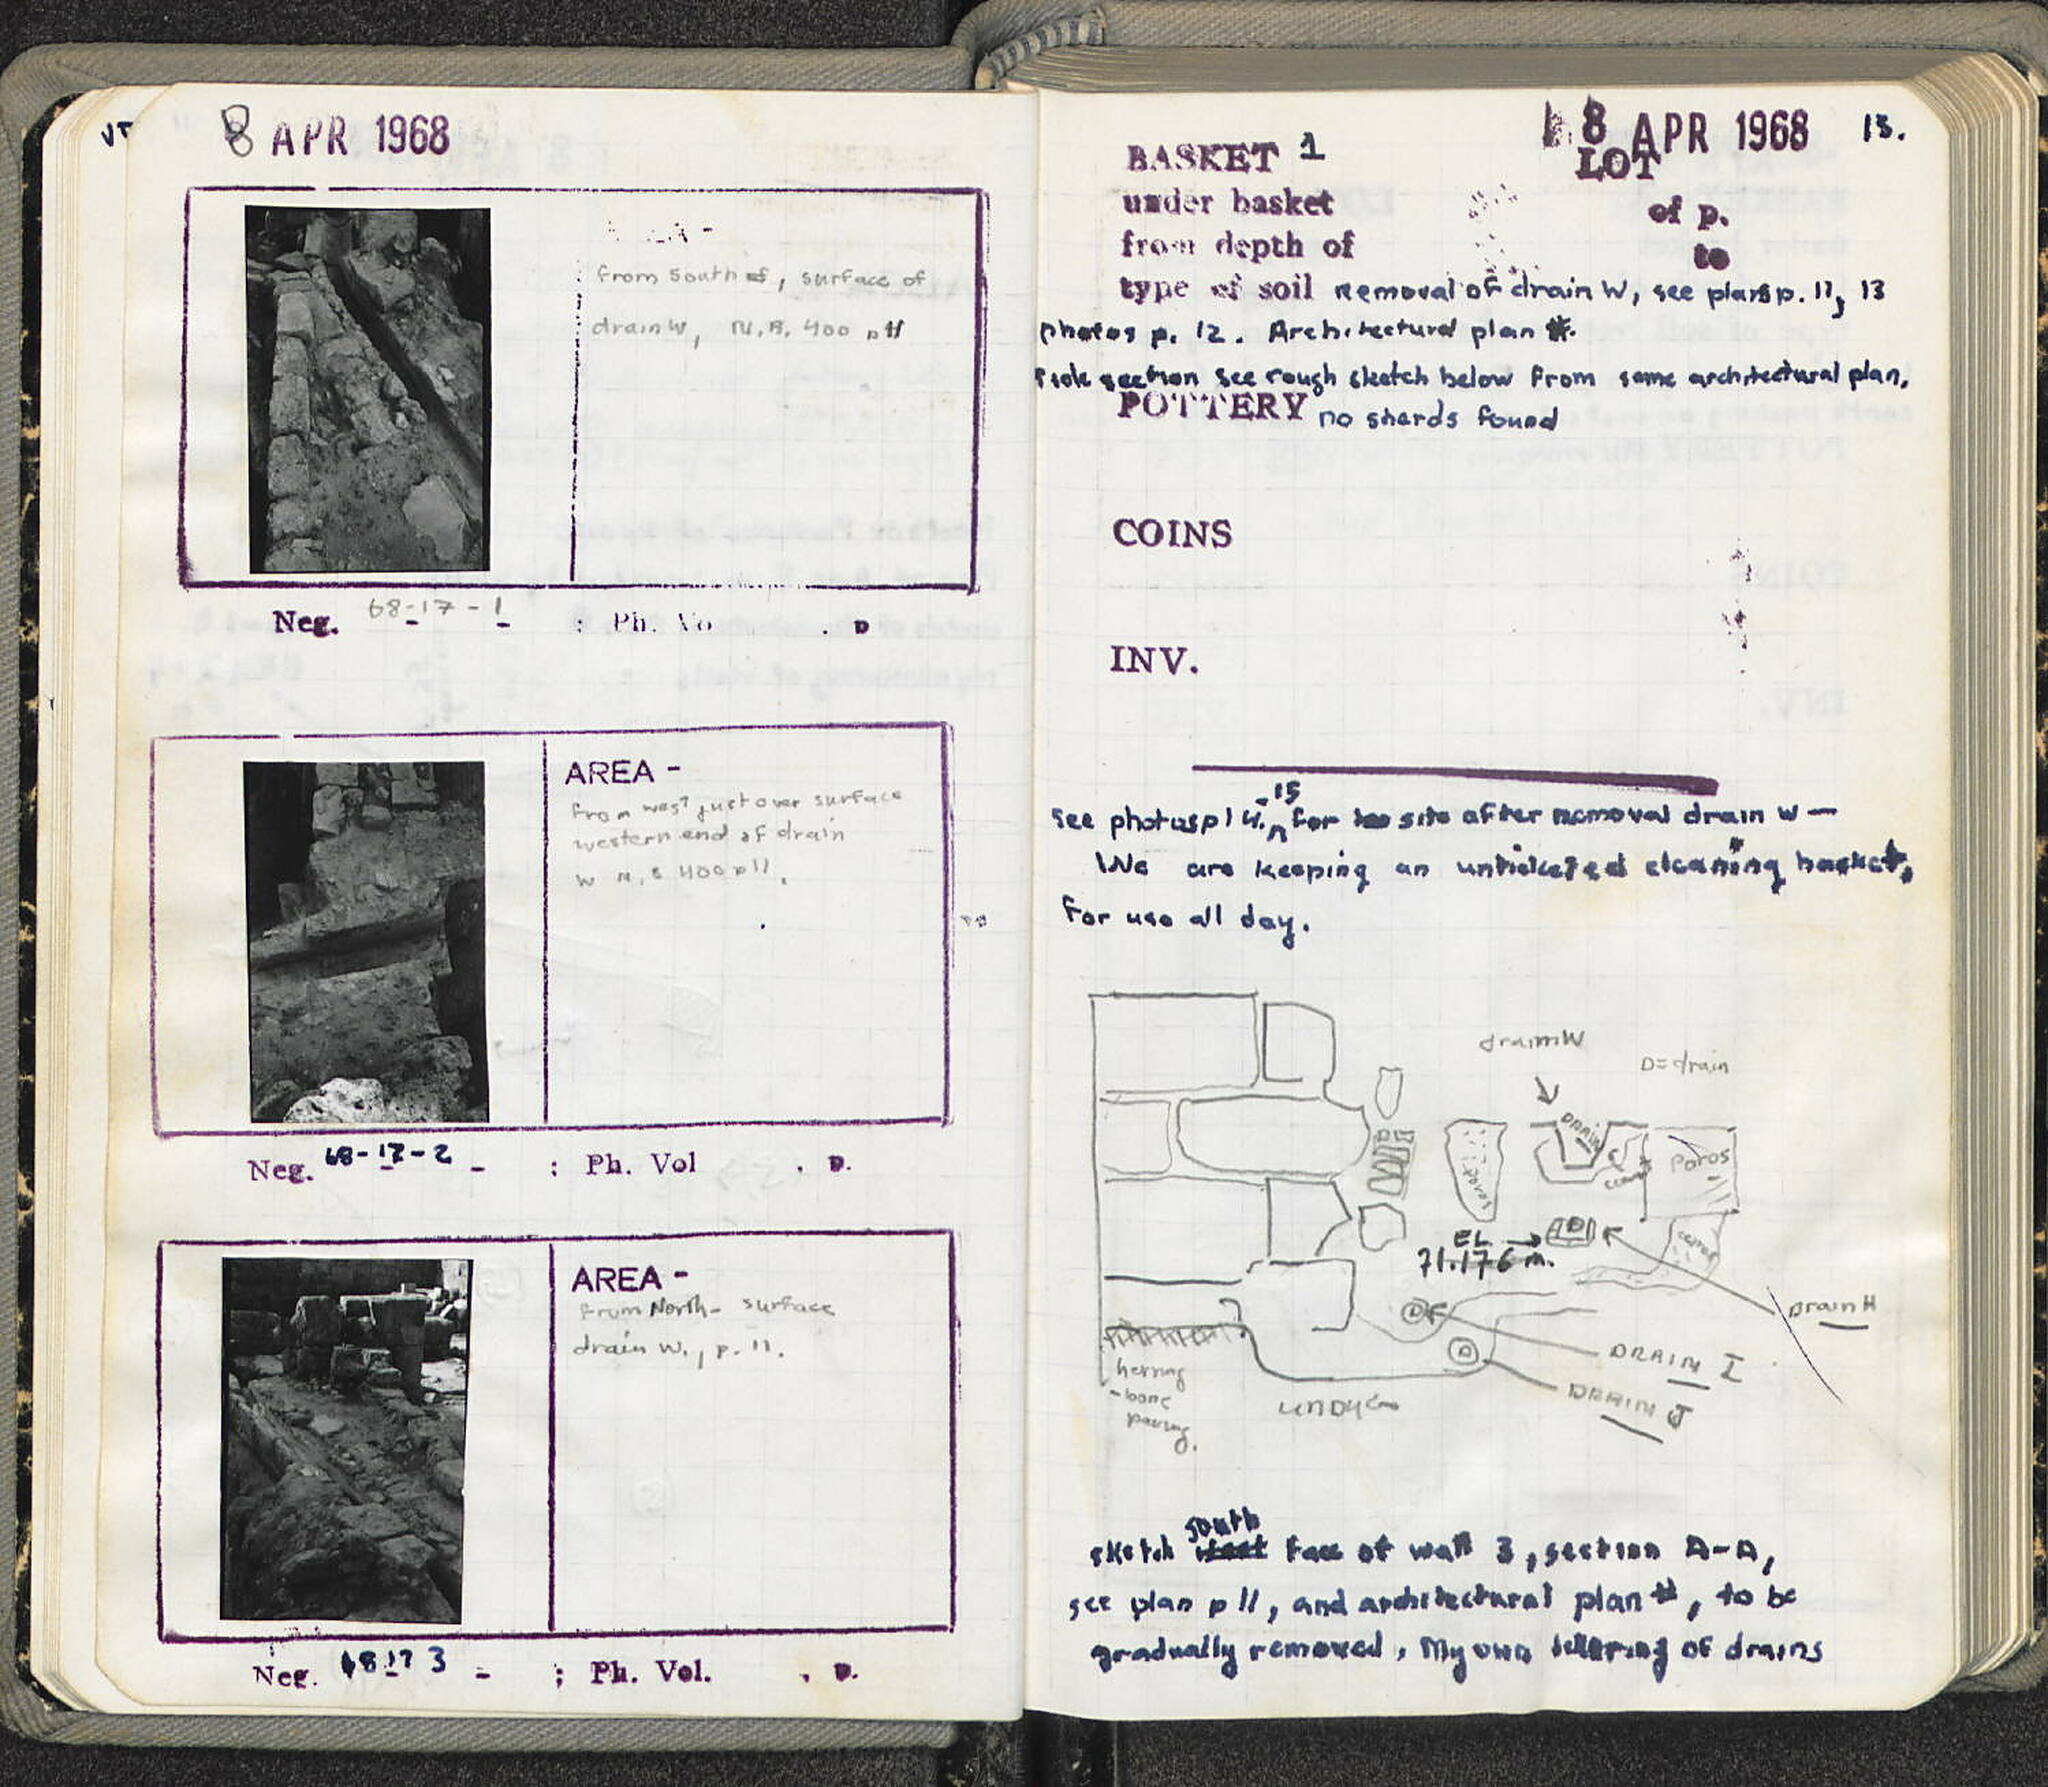 8 APR 1968
AREA -
from south, surface of
drain W, N.B. 400 p 11
Neg. 68-17-1 - : Ph. Vo . p
AREA -
from west just over surface
western end of drain
W N.B 400 p 11.
Neg. 68-17-2 - : Ph. Vol . p.
AREA -
From North- surface
drain W., p. 11.
Neg. 68 17 3 - ; Ph. Vol. . p.
8 APR 1968 13.
BASKET 1 LOT
under basket of p.
from depth of to
type of soil removal of drain W, see plans p. 11, 13
photos p. 12. Architectural plan #.
section see rough sketch below from same architectural plan,
POTTERY no sherds found
COINS
INV.
see photos p 14-15 for site after removal drain W —
We are keeping an unticketed cleaning basket,
for use all day.
drain W
D = drain
DRAIN
poros
Poros
EL
71.176 m.
D
Drain H
D
DRAIN I
D
DRAIN J
herring
-bone
paving.
UNDUG
sketch south face of wall 3, section A-A,
see plan p 11, and architectural plan #, to be
gradually removed. My own lettering of drains